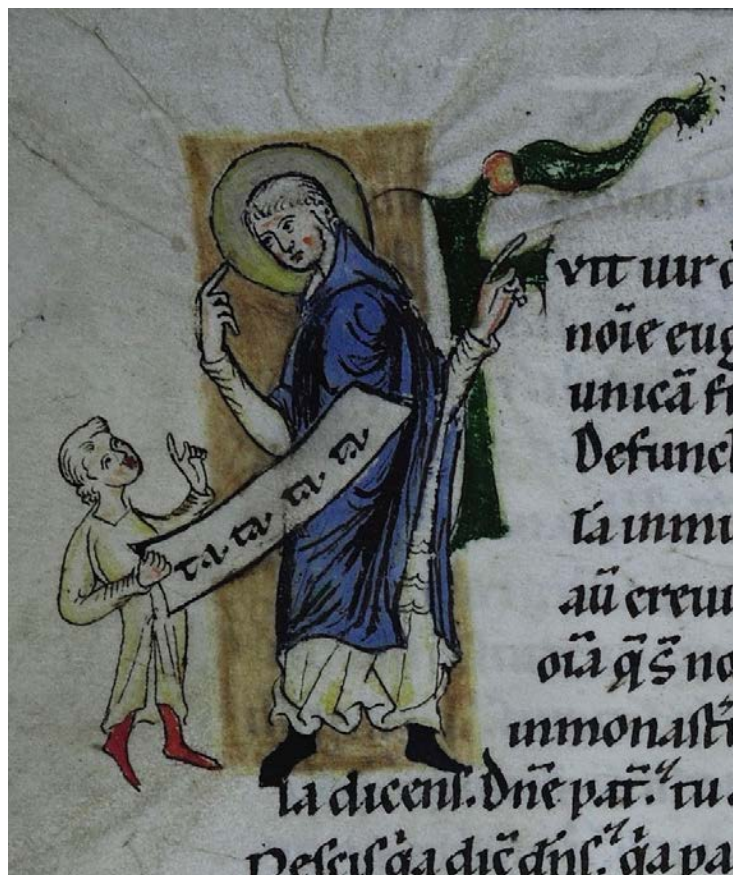 ta. ta. ta. ta
uit uir d
noīe eug
unicā fi
Defunct
la inmu
aū creui
oīa q̄s no
inmonast̄
la dicens. Dn̄e pat̄. tu
Nescis q̄a dic̄ dn̄s. q̄a pa